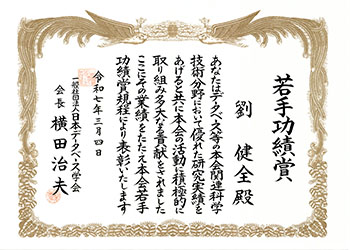 若手功績賞
劉健全殿
あなたはデータベース等の本会関連科学
技術分野において優れた研究実績を
あげると共に本会の活動に積極的に
取り組み多大な貢献をされました
ここにその業績をたたえ本会若手
功績賞規程により表彰いたします
令和七年三月四日
一般社団法人日本データベース学会
会長 横田治夫